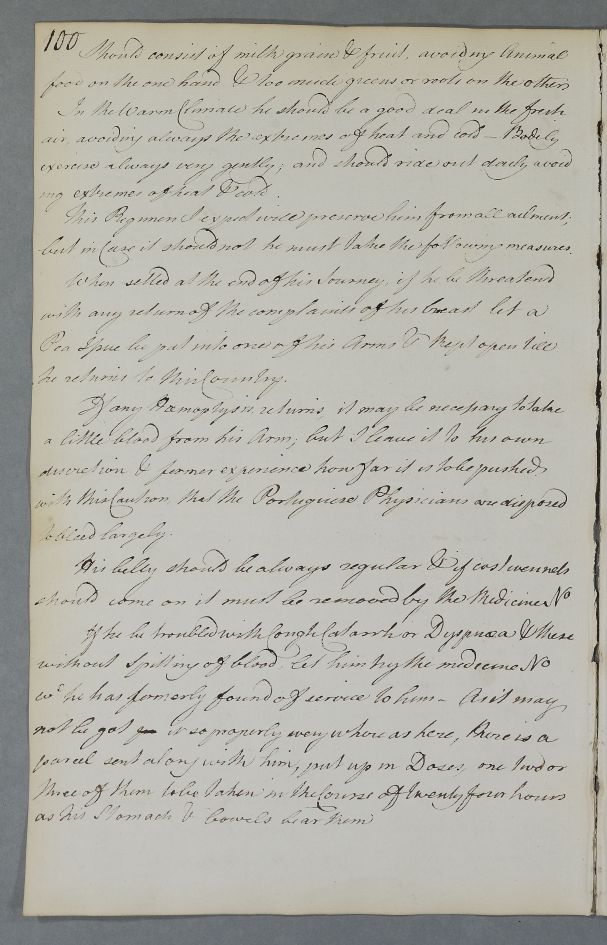 100
Should consist of milk grains & fruit, avoiding Animal
food on the one hand & too much greens or roots on the other
In the Warm Climate he should be a good deal in the fresh
air, avoiding always the extremes of heat and cold – Bodily
exercise always very gently; and should ride out daily avoid
ing extremes of heat & cold.
This Regimen I expect will preserve him from all ailment;
but in Case it should not he must take the following measures.
When setled at the end of his Journey, if he be threatend
with any return of the complaints of his breast let a
Pea Issue be put into one of his Arms & kept open till
he returns to this Country.
If any Hæmoptysis returns it may be necessary to take
a little blood from his Arm; but I leave it to his own
discretion & former experience how far it is to be pushed,
with this Caution that the Portuguese Physicians are disposed
to bleed largely.
His belly should be always regular & if costiveness
should come on it must be removed by the Medicine No
If he be troubled with Cough Catarrh or Dyspnæa & these
without Spitting of blood. let him try the medicine No
wc he has formerly found of service to him – As it may
not be got it so properly every where as here, there is a
parcel sent along with him, put up in Doses, one two or
three of them to be taken in the Course of twenty four hours
as his Stomach & bowels bear them